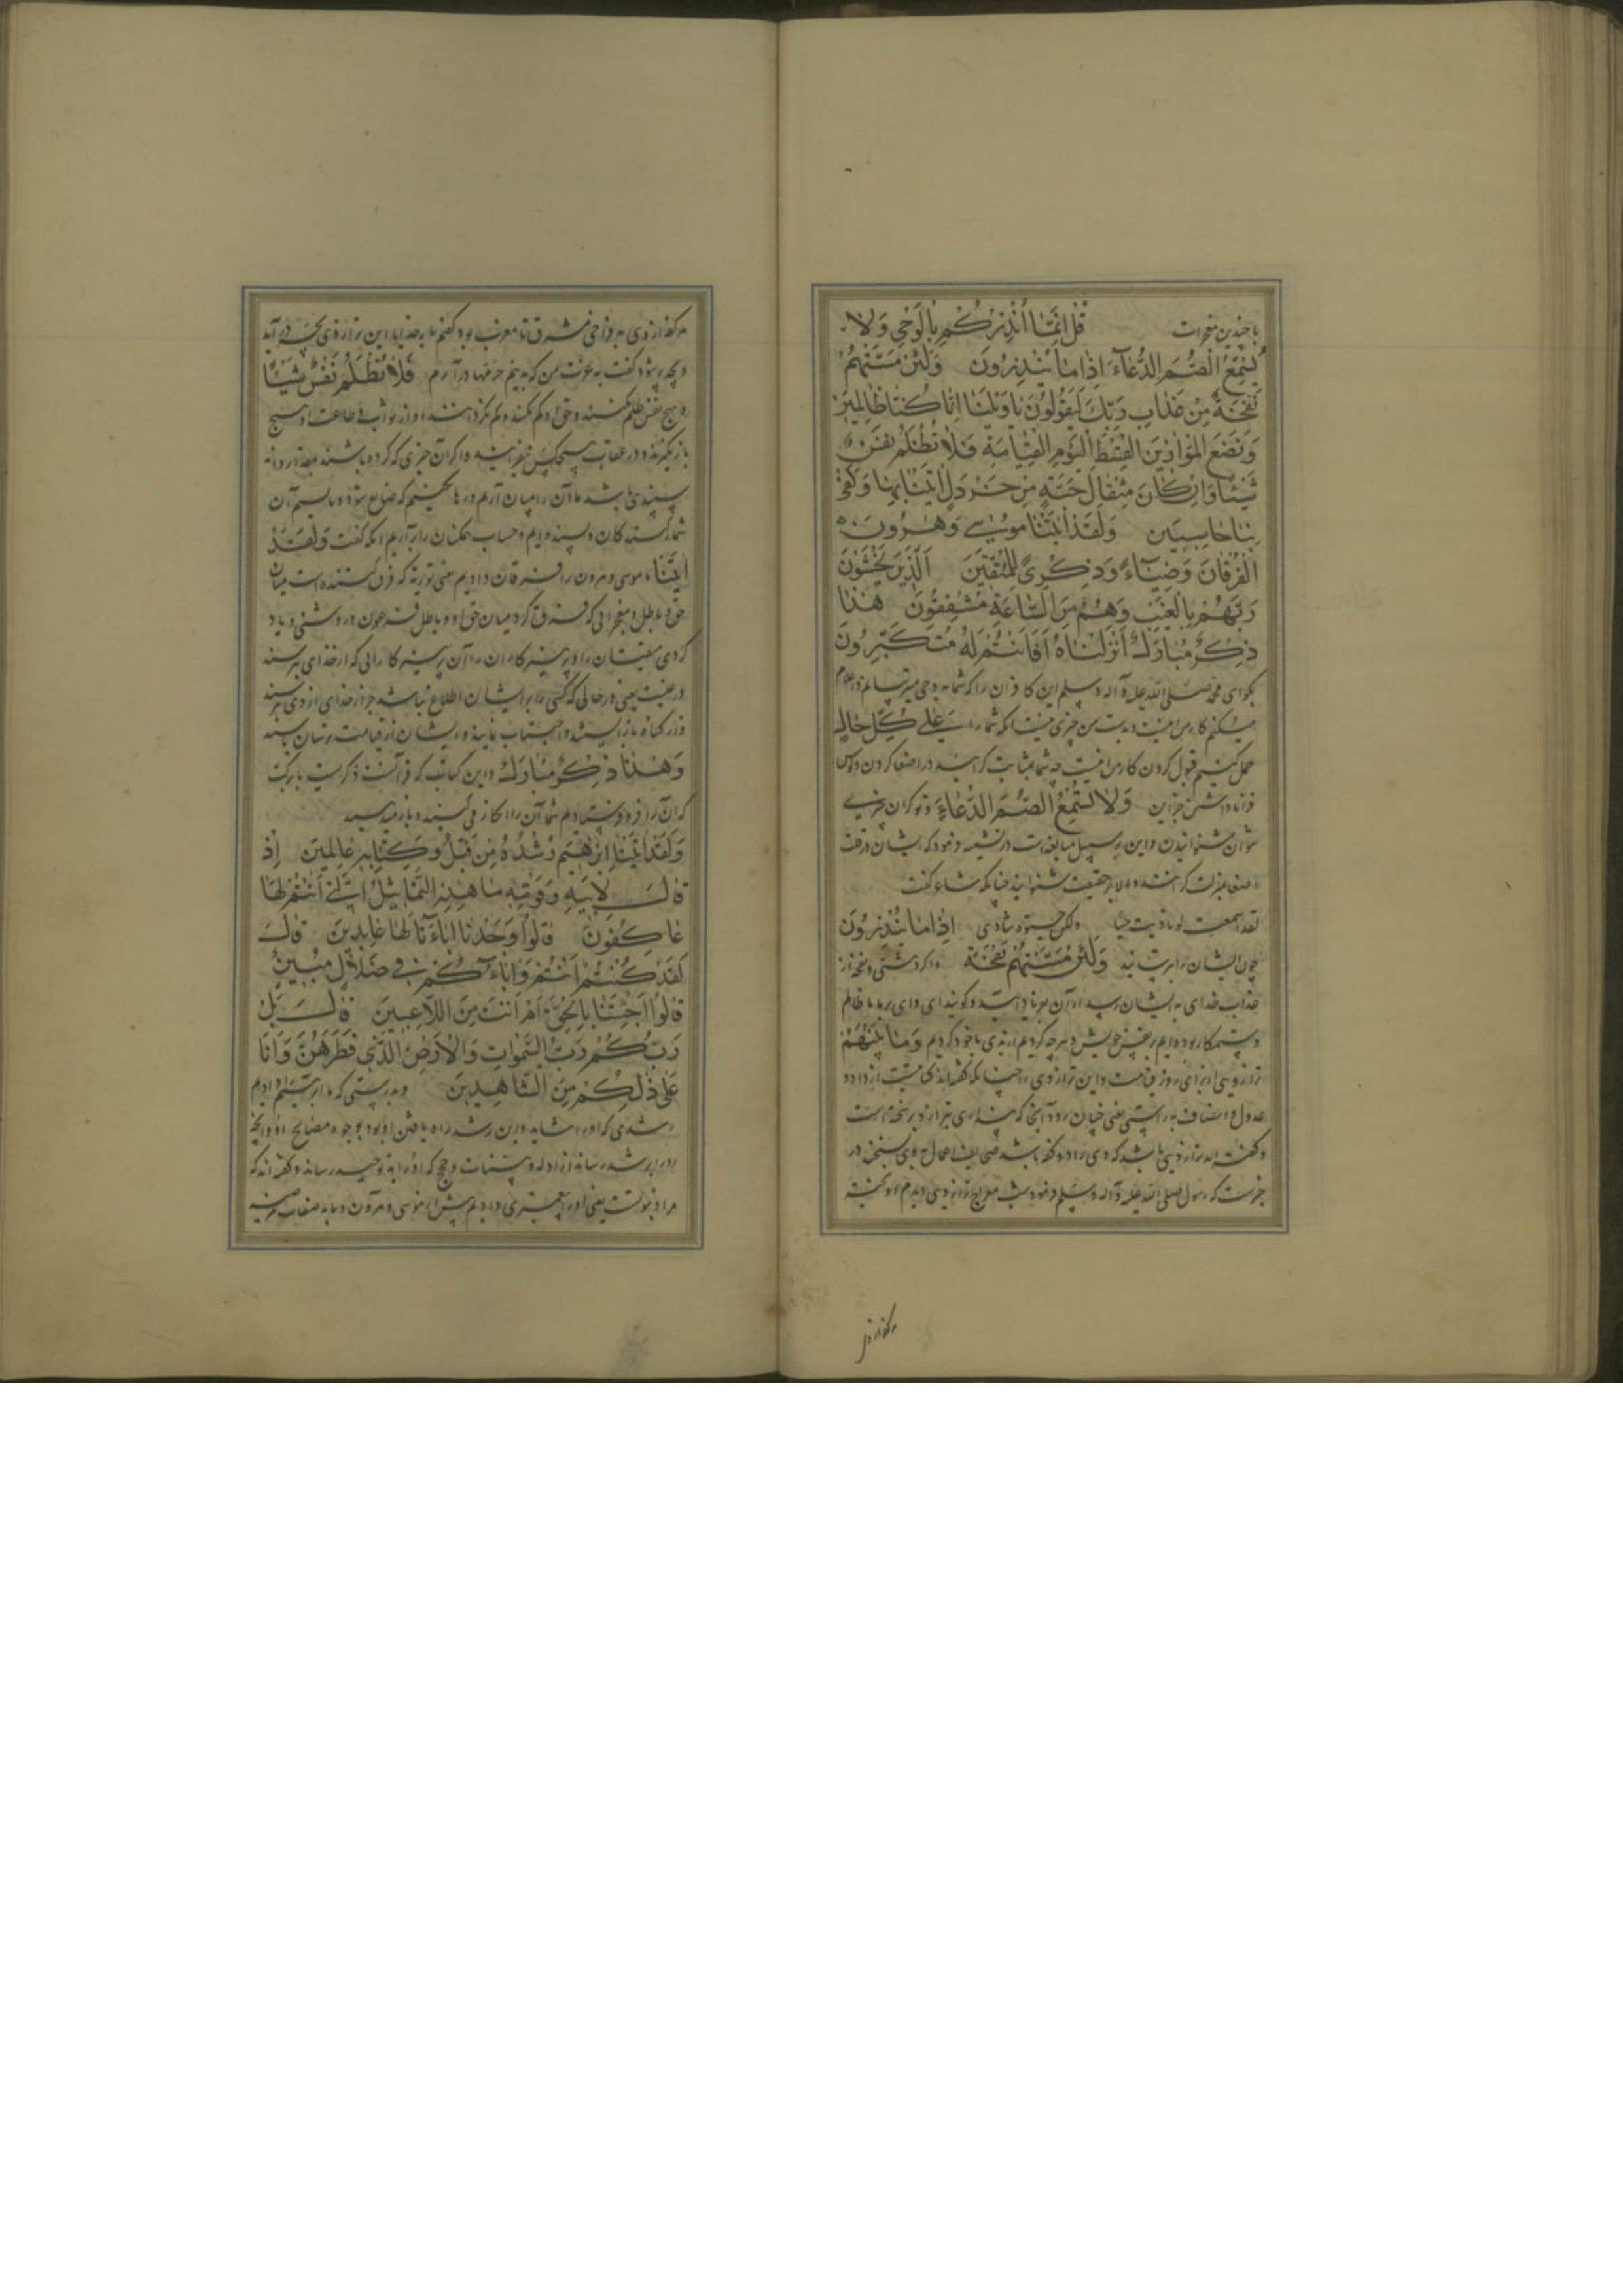 با چندین معجزات قُلْ اِنَّمَا اُنْذِرُكُمْ بِالْوَحْىِ وَلَا
يَسْمَعُ الصُّمُّ الدُّعَاءَ اِذَا مَا يُنْذَرُونَ وَلَئِنْ مَسَّتْهُمْ
نَفْحَةٌ مِنْ عَذَابِ رَبِّكَ لَيَقُولُنَّ يَا وَيْلَنَا اِنَّا كُنَّا ظَالِمِينَ
وَنَضَعُ الْمَوَازِينَ الْقِسْطَ لِيَوْمِ الْقِيَامَةِ فَلَا تُظْلَمُ نَفْسٌ
شَيْئًا وَاِنْ كَانَ مِثْقَالَ حَبَّةٍ مِنْ خَرْدَلٍ اَتَيْنَا بِهَا وَكَفَى
بِنَا حَاسِبِينَ وَلَقَدْ اٰتَيْنَا مُوسٰى وَهٰرُونَ
الْفُرْقَانَ وَضِيَاءً وَذِكْرًى لِلْمُتَّقِينَ اَلَّذِينَ يَخْشَوْنَ
رَبَّهُمْ بِالْغَيْبِ وَهُمْ مِنَ السَّاعَةِ مُشْفِقُونَ هٰذَا
ذِكْرٌ مُبَارَكٌ اَنْزَلْنَاهُ اَفَاَنْتُمْ لَهُ مُنْكِرُونَ
بگو ای محمد صلی الله علیه و آله و سلم این کافران را که شما به وحی میترسانم و اعلام
میکنم کار من نیست و بدست من چیزی نیست که شما را عَلٰى كُلِّ حَالٍ
حمل کنیم قبول کردن کار من نیست چه شما بمثابت کرانید در اصغا کردن
وَلَا يَسْمَعُ الصُّمُّ الدُّعَاءَ و تو کران
نتوان شنوانیدن و این بر سبیل مبالغه است در تشبیه و نمود که ایشان در قلت
اصغا بمنزلت کرانند و الا بحقیقت شنوایند چنانکه شاعر گفت
لقد اسمعت لو نادیت حیا ولکن لا حیوة لمن تنادی اِذَا مَا يُنْذَرُونَ
چون ایشان را بترسانید وَلَئِنْ مَسَّتْهُمْ نَفْحَةٌ و اگر نفحه از
عذاب خدای به ایشان رسد از آن بفریاد آیند و گویند ای وای بر ما ما ظالم
و ستمکار بوده‌ایم بر نفس خویش و هر چه کردیم از بدی با خود کردیم
ترازوهای از برای روز قیامت و این ترازوی را چنانکه گفته‌اند
عدول و انصاف به راستی یعنی
و گفته‌اند ترازویی باشد که وی را دو کفه باشد صحایف اعمال بوی سنجند در
خبرست که رسول صلی الله علیه و آله و سلم فرمود شب معراج ترازویی دیدم
هر کفه از وی به فراخی مشرق تا مغرب بود گفتم بار خدایا این ترازوی
گفت به عزت من که به نیم خرما در آرم فَلَا تُظْلَمُ نَفْسٌ شَيْئًا
و هیچ نفس ظلم نکنند و حق او کم نکنند و از ثواب طاعت او هیچ
باز نگیرند و در عقاب هیچکس نیفزایند و اگر آن چیزی که کرده باشند بمقدار دانه
سپندی باشد ما آن را بمیان آرم و رها نکنیم که ضایع شود و ما بسیم آن
شمارکنندگان و بسنده‌ایم و حساب همگنان را برآریم آنگه گفت وَلَقَدْ
اٰتَيْنَا ما موسی و هرون را فرقان دادیم یعنی توریة که فرق کننده است میان
حق و باطل و معجزاتی که فرق کرد میان حق او و باطل فرعون و روشنی و یاد
کردی متقیان را و پرهیزکاران را آن پرهیزکارانی که از خدای بترسند
در غیبت یعنی در حالی که کسی را بر ایشان اطلاع نباشد جز از خدای از وی بترسند
و از گناه باز ایستند و اجتناب نمایند و ایشان از قیامت ترسان باشند
وَهٰذَا ذِكْرٌ مُبَارَكٌ و این کتاب که قرآنست ذکریست با برکت
که آن را فرو فرستادم شما آن را انکار می کنید
وَلَقَدْ اٰتَيْنَا اِبْرٰهِيمَ رُشْدَهُ مِنْ قَبْلُ وَكُنَّا بِهِ عَالِمِينَ اِذْ
قَالَ لِاَبِيهِ وَقَوْمِهِ مَا هٰذِهِ التَّمَاثِيلُ الَّتِى اَنْتُمْ لَهَا
عَاكِفُونَ قَالُوا وَجَدْنَا اٰبَاءَنَا لَهَا عَابِدِينَ قَالَ
لَقَدْ كُنْتُمْ اَنْتُمْ وَاٰبَاؤُكُمْ فِى ضَلَالٍ مُبِينٍ
قَالُوا اَجِئْتَنَا بِالْحَقِّ اَمْ اَنْتَ مِنَ اللَّاعِبِينَ قَالَ بَلْ
رَبُّكُمْ رَبُّ السَّمٰوَاتِ وَالْاَرْضِ الَّذِى فَطَرَهُنَّ وَاَنَا
عَلٰى ذٰلِكُمْ مِنَ الشَّاهِدِينَ و بدرستی که ما ابرهیم را دادیم
رشدی که او را شاید و این رشد راه یافتن او بود بوجوه مصالح او و آنچه
او را برشد رساند از ادله و بینات و حجج که او را به توحید رساند و گفته‌اند که
مراد نبوتست یعنی او را پیغمبری دادیم پیش از موسی و هرون و ما به صفات